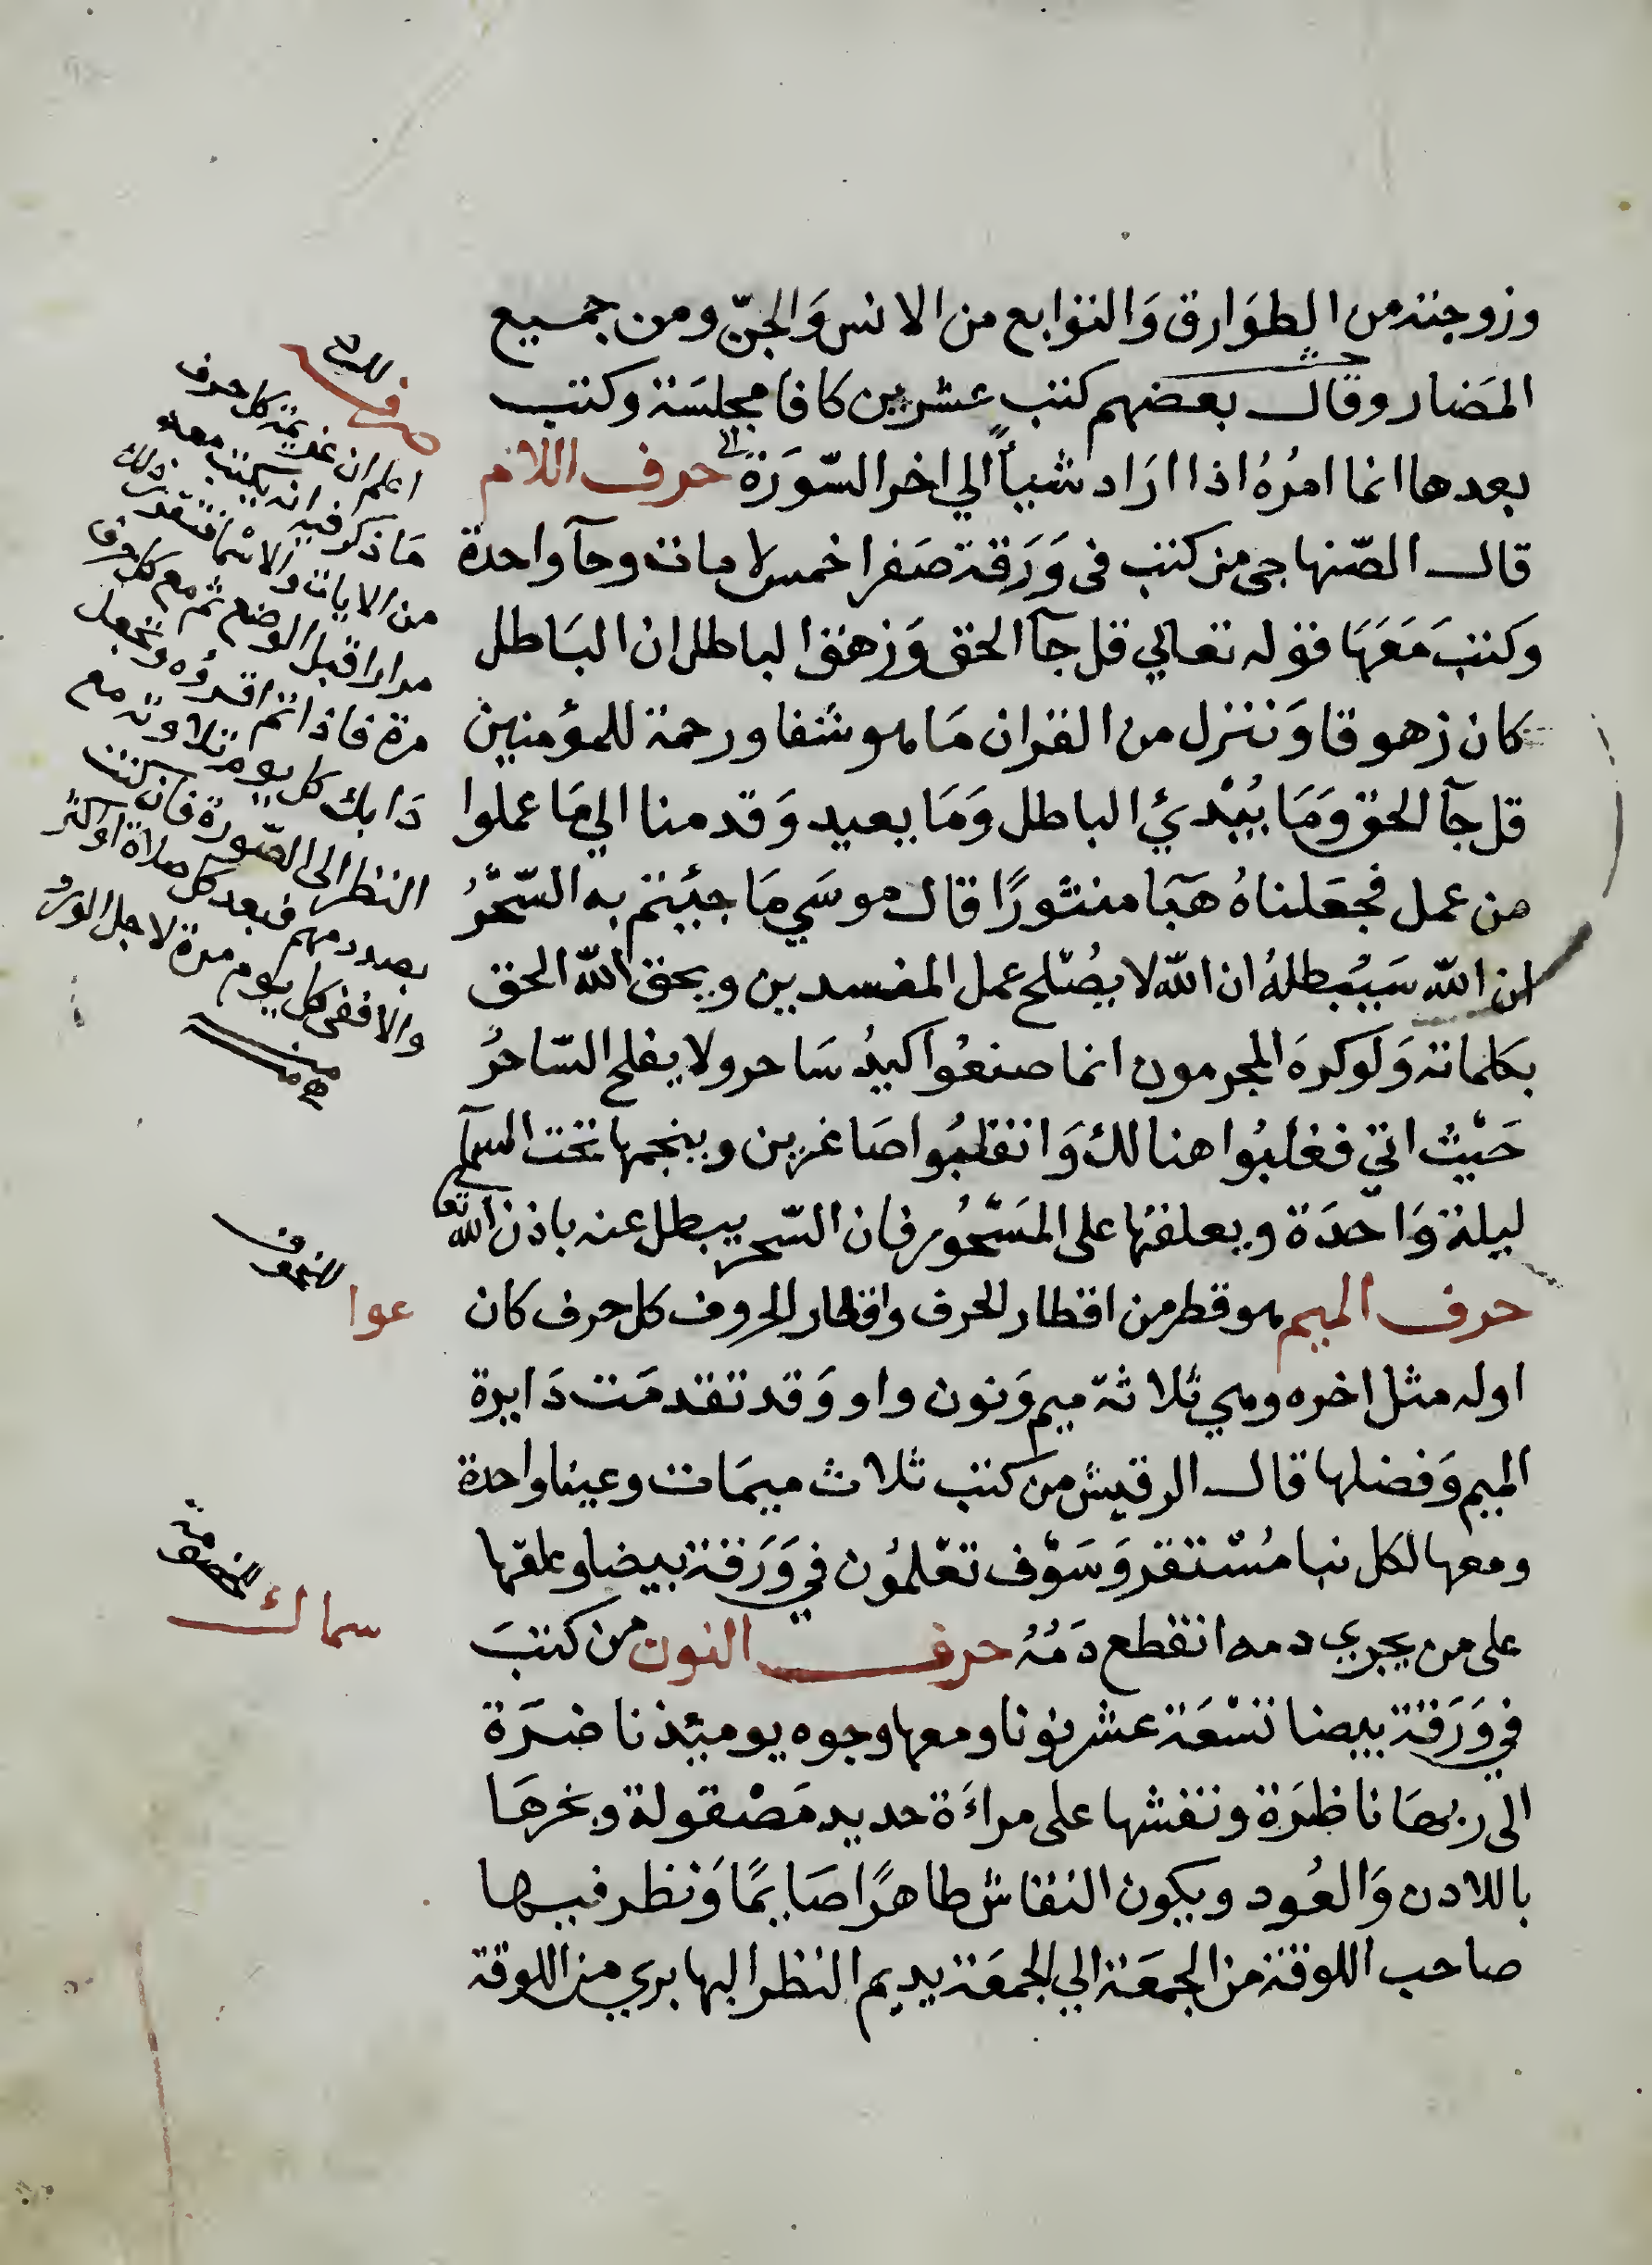 وزوجته من الطوارق وَالتوابع من الانس وَالجنّ ومن جميع
المَضار وقال بعضهم كتب عشرين كافا مجلسَة وكتب
بعدها انما امرُهُ اذا ارَاد شيأً الي اخر السّورَة حرف اللام
قال الصّنهاجى من كتب فى وَرَقة صَفرا خمس لامات وحآ واحدة
وَكتبَ مَعَهَا قوله تعالي قل جآ الحق وَزهق الباطل ان البَاطل
كان زهوقا وَننزل من القران مَا هو شفا ورحمة للمؤمنين
قل جآ الحق وَمَا يُبْدئ الباطل وَمَا يعيد وَقدمنا الي مَا عملوا
من عمل فجعَلناهُ هَبَا منثورًا قال موسَي مَا جئتم به السّحْرُ
ان اللّه سَيُبطلهُ ان اللّه لا يصُلح عمل المفسدين ويحق اللّه الحق
بكلماته وَلوكرهَ المجرمون انما صنعُوا كيدُ سَاحر ولا يفلح السّاحرُ
حَيْثُ اتي فغلبُوا هنالك وَانقلبُوا صَاغرين وينجمها تحت السمآ
ليلة وَاحدَة ويعلقهَا على المَسْحُور فان السّحر يبطل عنه باذن اللّه تعا
حرف الميم هو قطر من اقطار الحرف واقطار الحروف كل حرف كان
اوله مثل اخره وهي ثلاثة ميم وَنون واو وَقد تقدمَت دَايرة
الميم وَفضلها قال الرقيش من كتب ثلاث ميمَات وعينا واحدة
ومعها لكل نبا مُسْتقر وَسَوْف تعْلمُون في وَرَقة بيضا وعلقها
على من يجري دمه انقطع دَمُهُ حرف النون من كتبَ
في وَرَقة بيضا تسْعَة عشر نونا ومعها وجوه يومئذ ناضرَة
الى ربهَا ناظرَة ونقشها على مراءَة حديد مَصْقولة وبخرهَا
باللادن وَالعُود ويكون النقاش طاهرًا صَايمًا وَنظر فيها
صاحب اللوقة من الجمعَة الي الجمعَة يديم النظر اليها بري من اللوقة
اعلم ان عزيمة كل حرف
مَا ذكر فيه انه يكتب معه
من الايات والاسْما فتقدر ذلك
مرارا قبل الوضع ثم مع كل حرف
مرة فاذا تم اقرؤه وتجعل
دَابك كل يوم تلاوته مع
النظر الى الصّورة فان كنت
بصدد مهم فبعد كل صلاة او اكثر
والا ففى كل يوم مرة لاجل الورد
عوا
سماك